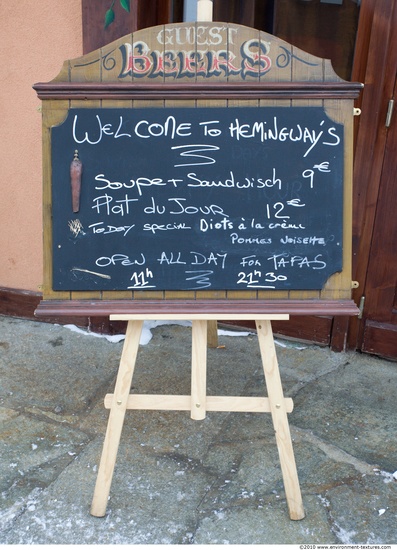 GUEST
BEERS
WELCOME TO HEMINGWAY'S
Soupe + Sandwisch 9€
Plat du Jour 12€
To Day special Diots à la crème
Pommes Noisette
OPEN ALL DAY FOR TAPAS
11h 21h30
©2010 www.environment-textures.com